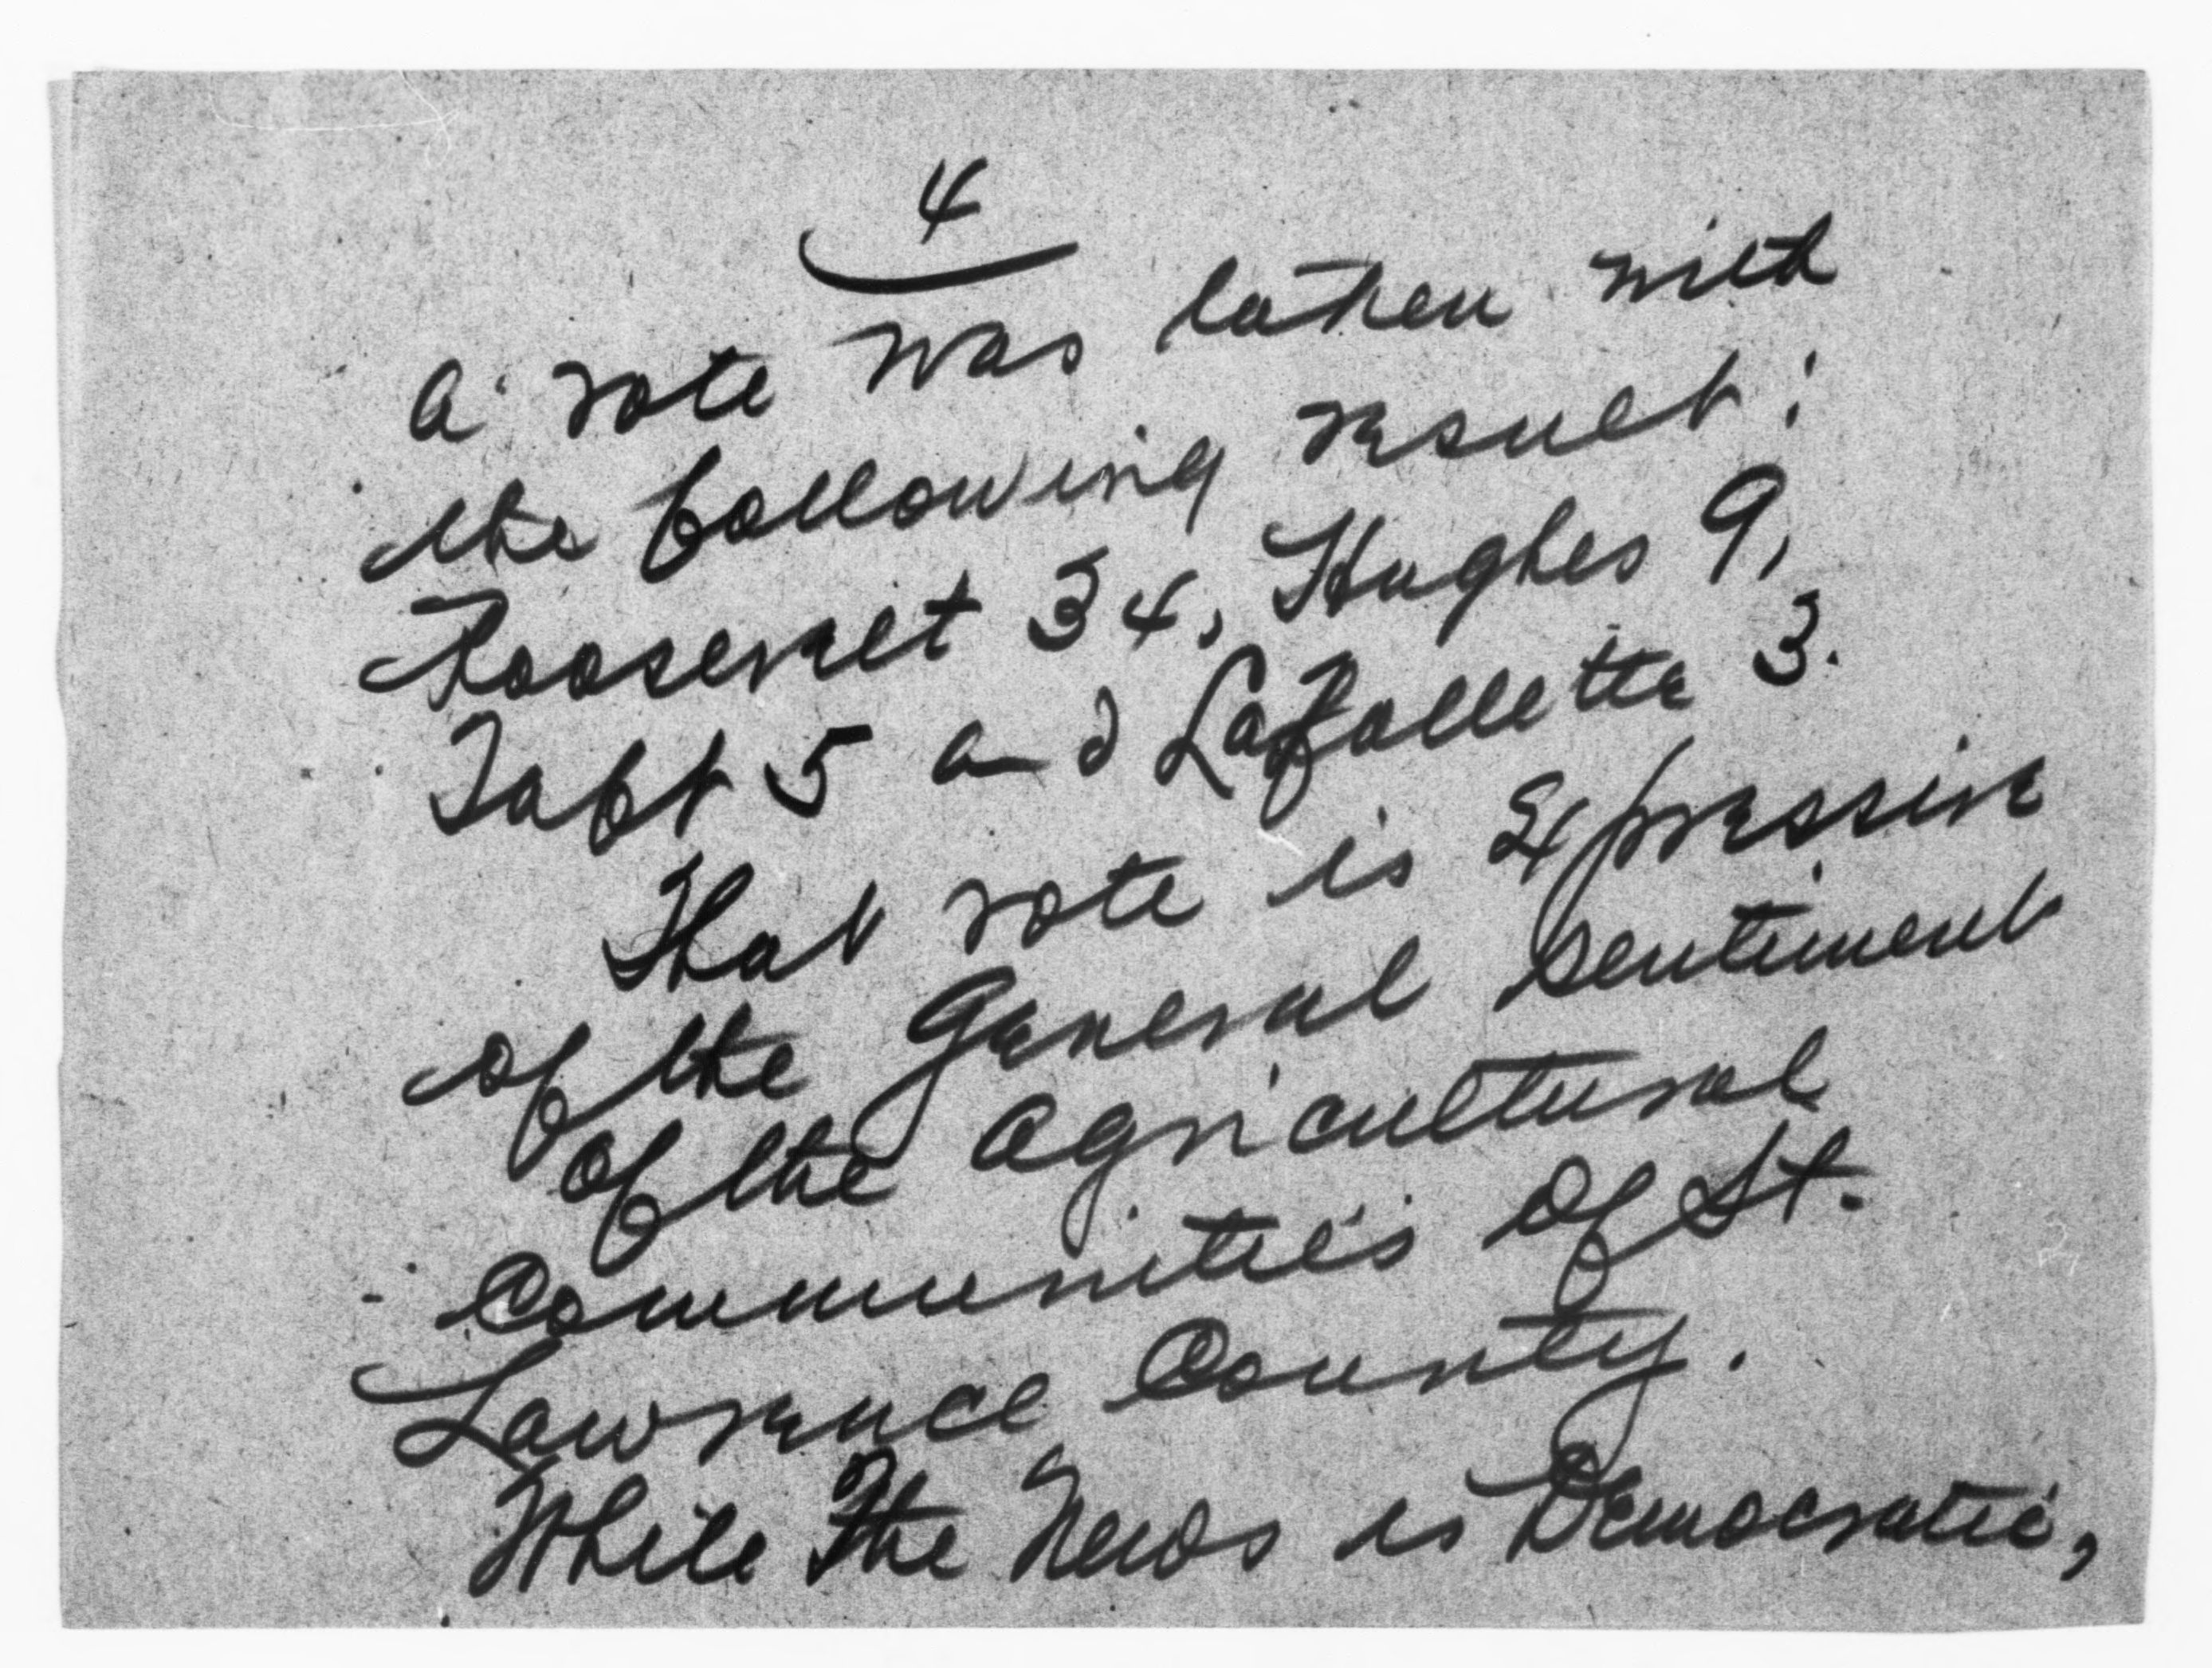 4
a vote was taken with
the following result:
Roosevelt 34, Hughes 9,
Taft 5 and LaFollette 3.
That vote is expressive
of the general sentiment
of the agricultural
communities of St.
Lawrence County.
While The News is Democratic,